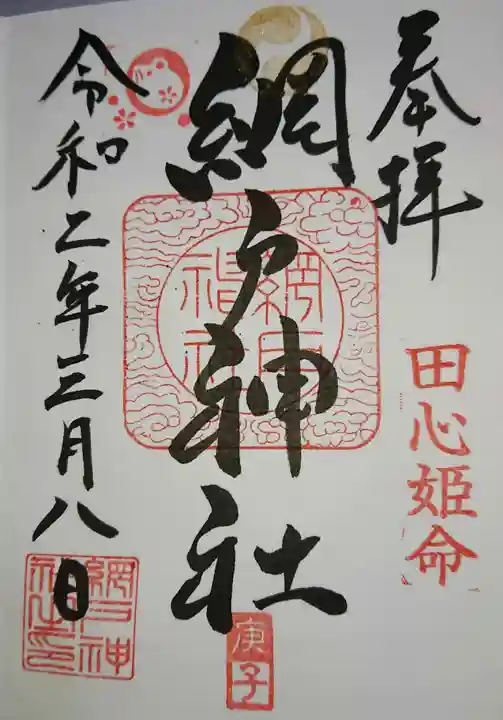 奉拝
田心姫命
網戸神社
網戸神社
庚子
令和二年三月八日
網戸神社之印